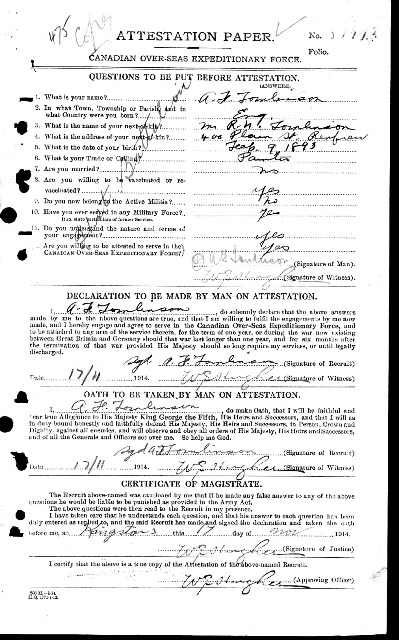 475
ATTESTATION PAPER.
No.
Folio.
CANADIAN OVER-SEAS EXPEDITIONARY FORCE.
QUESTIONS TO BE PUT BEFORE ATTESTATION.
(ANSWERS)
1. What is your name? A F Tomlinson
2. In what Town, Township or Parish, and in
what Country were you born? Eng
3. What is the name of your next-of-kin? Tomlinson
4. What is the address of your next-of-kin? St. Renfrew
5. What is the date of your birth? Sep. 9, 1893
6. What is your Trade or Calling?
7. Are you married? no
8. Are you willing to be vaccinated or re-
vaccinated? yes
9. Do you now belong to the Active Militia? no
10. Have you ever served in any Military Force? yes
11. Do you understand the nature and terms of
your engagement? yes
Are you willing to be attested to serve in the
CANADIAN OVER-SEAS EXPEDITIONARY FORCE? yes
A F Tomlinson (Signature of Man).
(Signature of Witness).
DECLARATION TO BE MADE BY MAN ON ATTESTATION.
I, A F Tomlinson, do solemnly declare that the above answers
made by me to the above questions are true, and that I am willing to fulfil the engagements by me now
made, and I hereby engage and agree to serve in the Canadian Over-Seas Expeditionary Force, and
to be attached to any arm of the service therein, for the term of one year, or during the war now existing
between Great Britain and Germany should that war last longer than one year, and for six months after
the termination of that war provided His Majesty should so long require my services, or until legally
discharged.
Sgd A F Tomlinson (Signature of Recruit)
Date 17/11 1914. (Signature of Witness)
OATH TO BE TAKEN BY MAN ON ATTESTATION.
I, A F Tomlinson, do make Oath, that I will be faithful and
bear true Allegiance to His Majesty King George the Fifth, His Heirs and Successors, and that I will as
in duty bound honestly and faithfully defend His Majesty, His Heirs and Successors, in Person, Crown and
Dignity, against all enemies, and will observe and obey all orders of His Majesty, His Heirs and Successors,
and of all the Generals and Officers set over me. So help me God.
Sgd A F Tomlinson (Signature of Recruit)
Date 17/11 1914. (Signature of Witness)
CERTIFICATE OF MAGISTRATE.
The Recruit above-named was cautioned by me that if he made any false answer to any of the above
questions he would be liable to be punished as provided in the Army Act.
The above questions were then read to the Recruit in my presence.
I have taken care that he understands each question, and that his answer to each question has been
duly entered as replied to, and the said Recruit has made and signed the declaration and taken the oath
before me, at Kingston this 17 day of Nov 1914.
(Signature of Justice)
I certify that the above is a true copy of the Attestation of the above-named Recruit.
(Approving Officer)